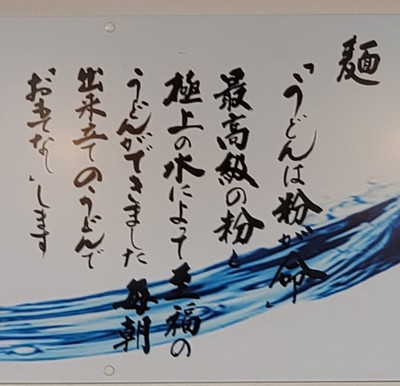 麺
「うどんは粉が命」
最高級の粉と
極上の水によって至福の
うどんができました 毎朝
出来立てのうどんで
"おもてなし"します